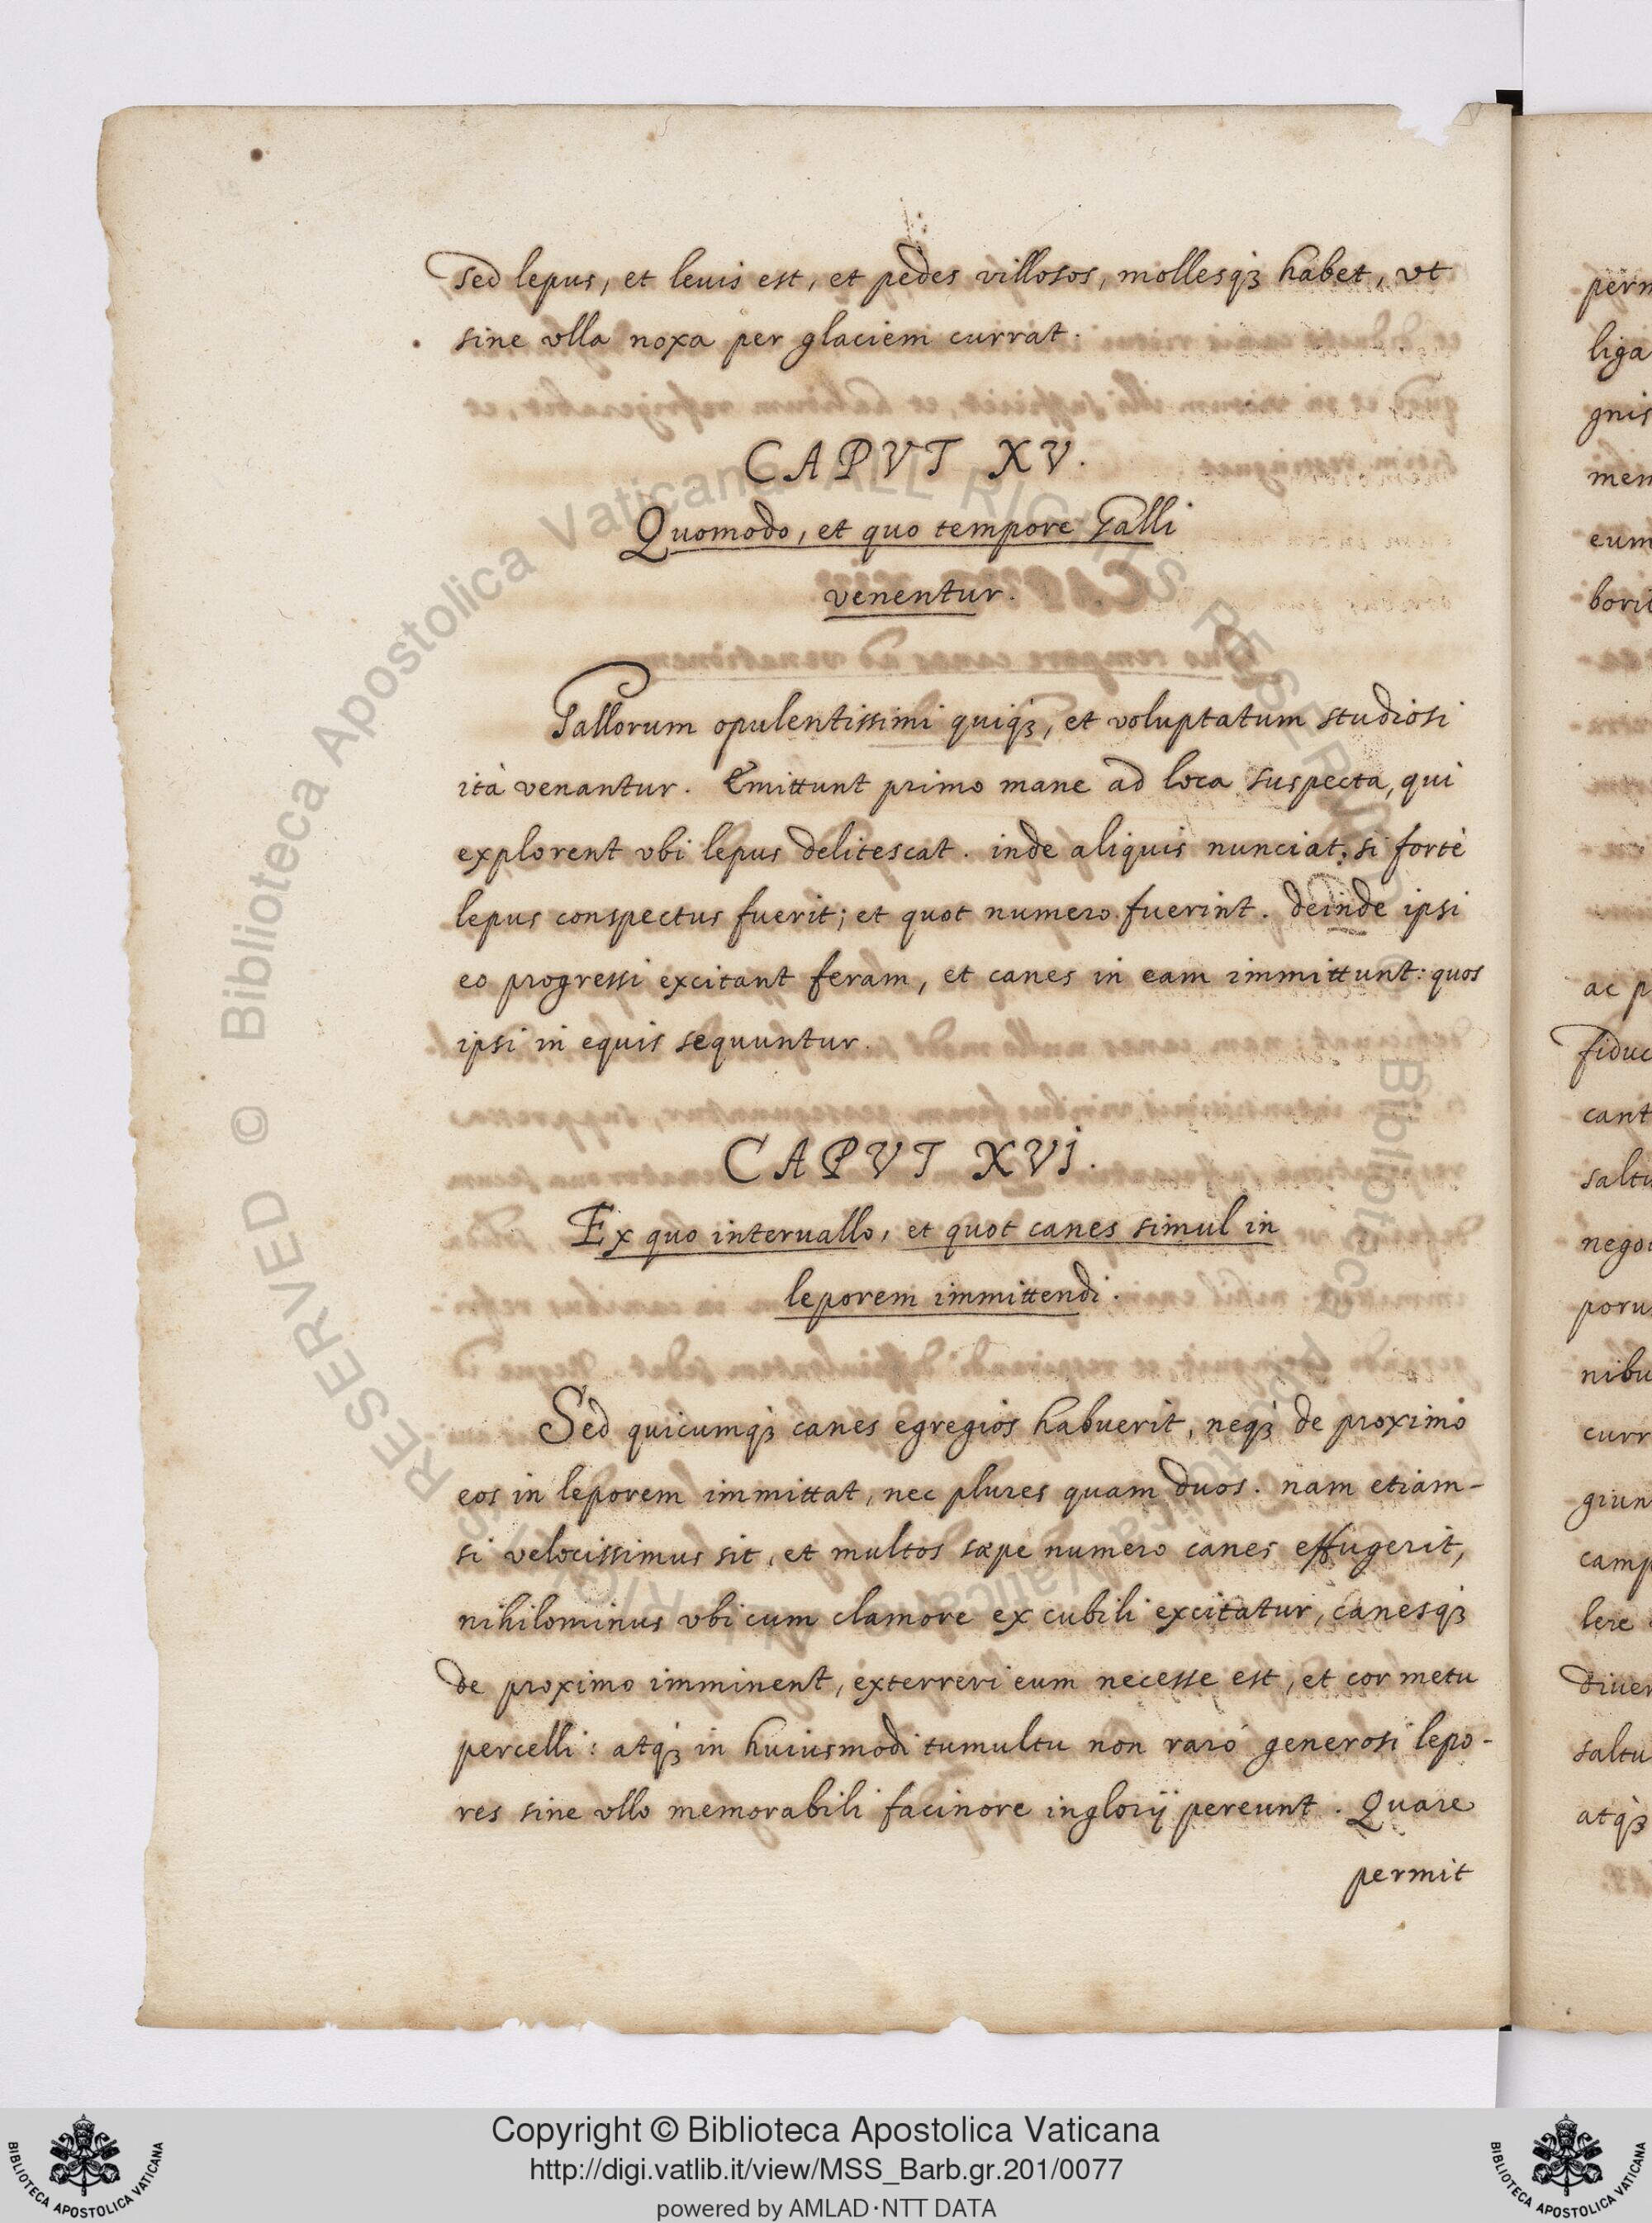 sed lepus, et leuis est, et pedes villosos, mollesqꝫ habet, vt
sine vlla noxa per glaciem currat.
CAPVT XV.
Quomodo, et quo tempore Galli
venentur.
Gallorum opulentissimi quiqꝫ, et voluptatum studiosi
ità venantur. Emittunt primo mane ad loca suspecta, qui
explorent vbi lepus delitescat. inde aliquis nunciat, si fortè
lepus conspectus fuerit; et quot numero fuerint. deinde ipsi
eo progressi excitant feram, et canes in eam immittunt: quos
ipsi in equis sequuntur.
CAPVT XVI.
Ex quo interuallo, et quot canes simul in
leporem immittendi.
Sed quicumqꝫ canes egregios habuerit, neqꝫ de proximo
eos in leporem immittat, nec plures quam duos. nam etiam-
si velocissimus sit, et multos sæpe numero canes effugerit,
nihilominus vbi cum clamore ex cubili excitatur, canesqꝫ
de proximo imminent, exterreri eum necesse est, et cor metu
percelli: atqꝫ in huiusmodi tumultu non rarò generosi lepo-
res sine vllo memorabili facinore inglorij pereunt. Quare
permit
perm
liga
gnis
men
eum
ac p
fiduc
cant
salt
nego
poru
nibu
curr
giun
camp
lere
diuer
saltu
atqꝫ
© Biblioteca Apostolica Vaticana ALL RIGHTS RESERVED
Copyright © Biblioteca Apostolica Vaticana
http://digi.vatlib.it/view/MSS_Barb.gr.201/0077
powered by AMLAD·NTT DATA
BIBLIOTECA APOSTOLICA VATICANA
BIBLIOTECA APOSTOLICA VATICANA